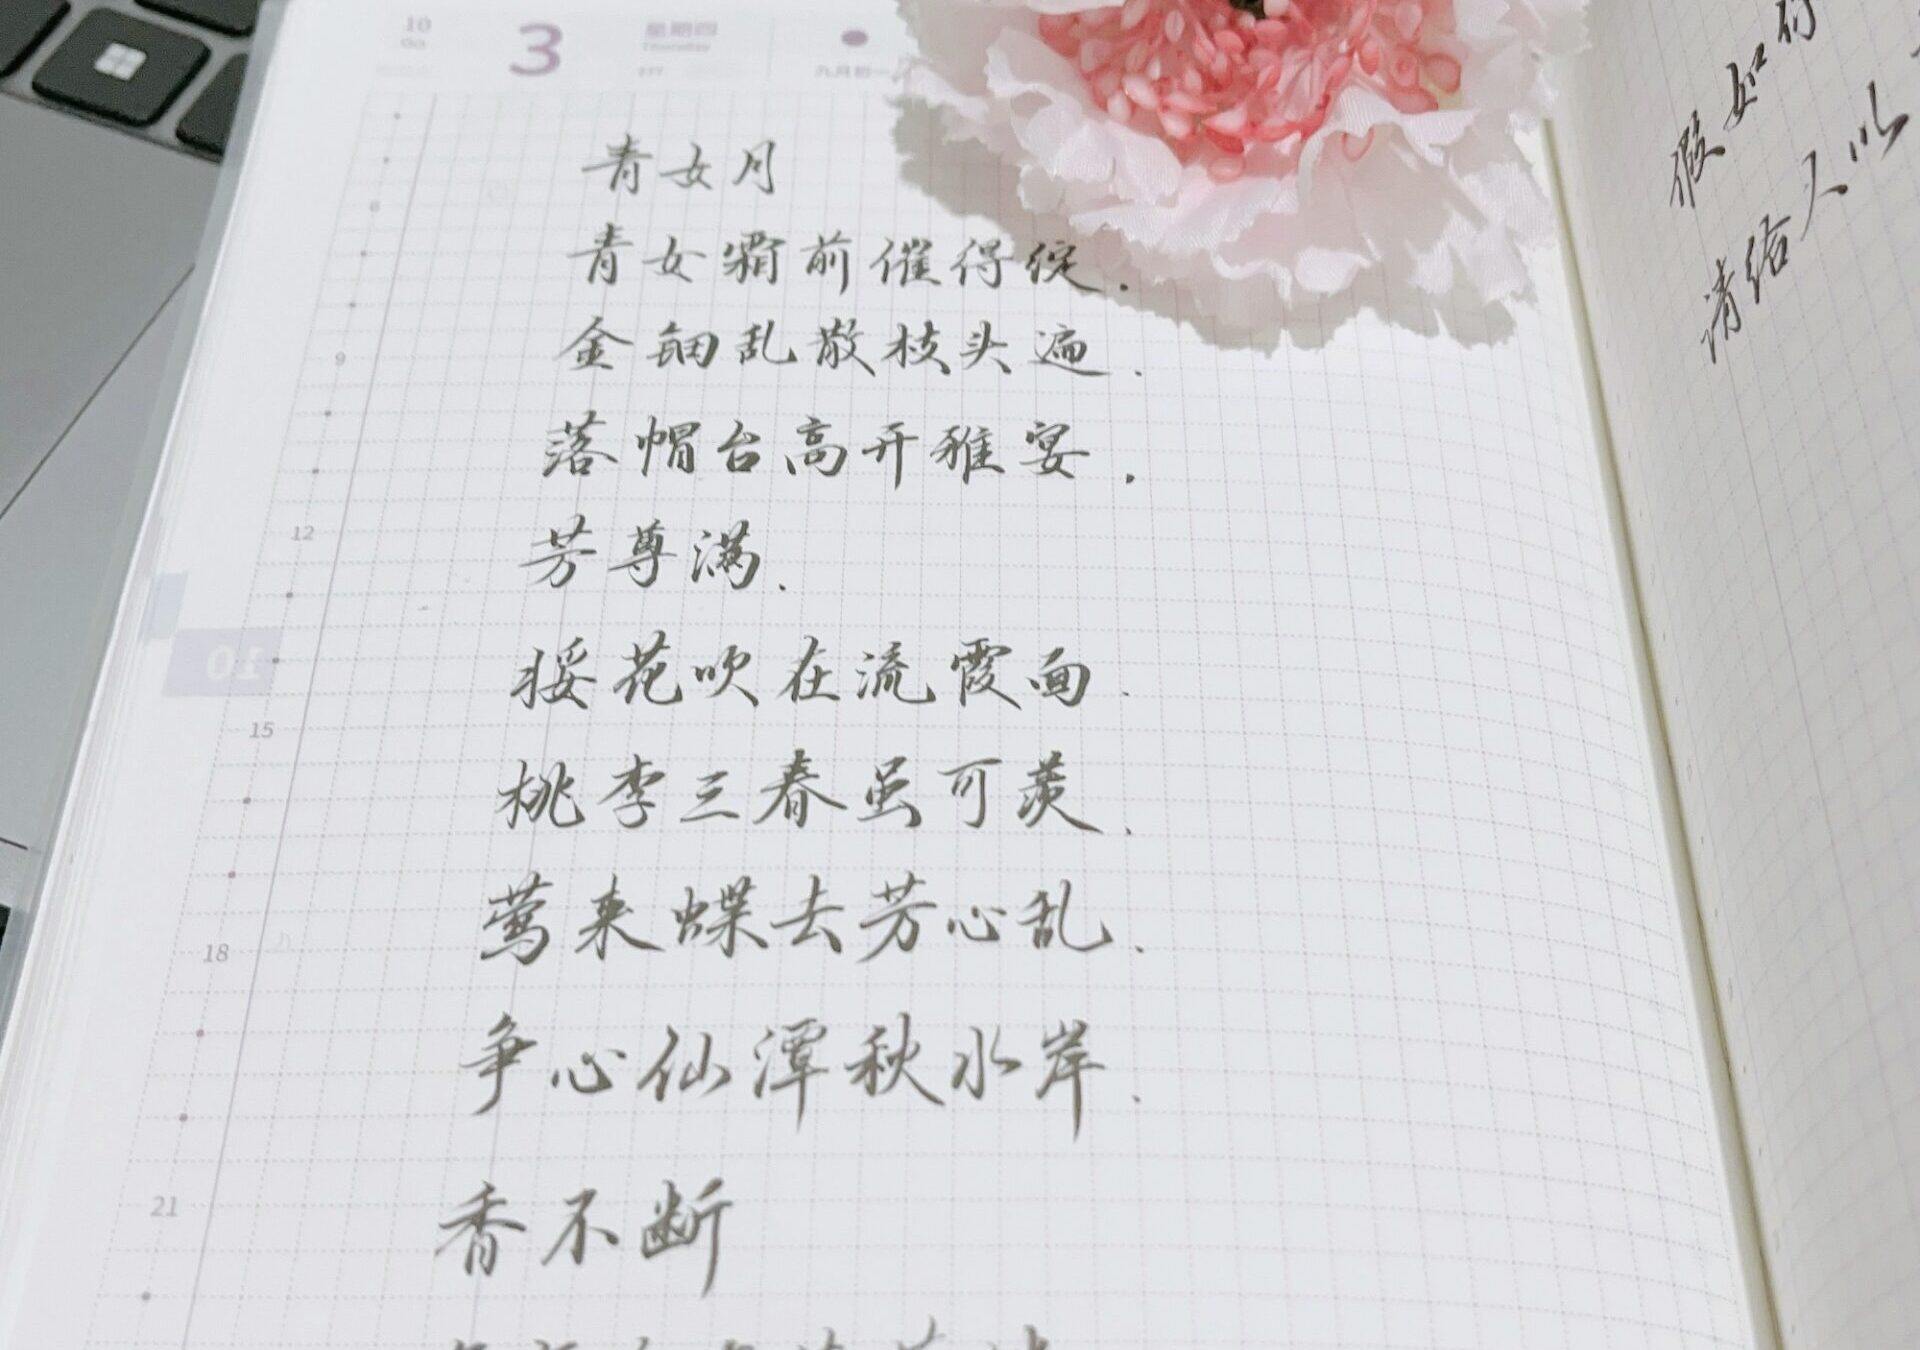 10
3
星期四
Thursday
277
九月初一
青女月
青女霜前催得绽.
金钿乱散枝头遍.
落帽台高开雅宴.
芳尊满.
挼花吹在流霞面.
桃李三春虽可羡.
莺来蝶去芳心乱.
争心仙潭秋水岸.
香不断
6
9
12
15
18
21
10
假如
请给人以